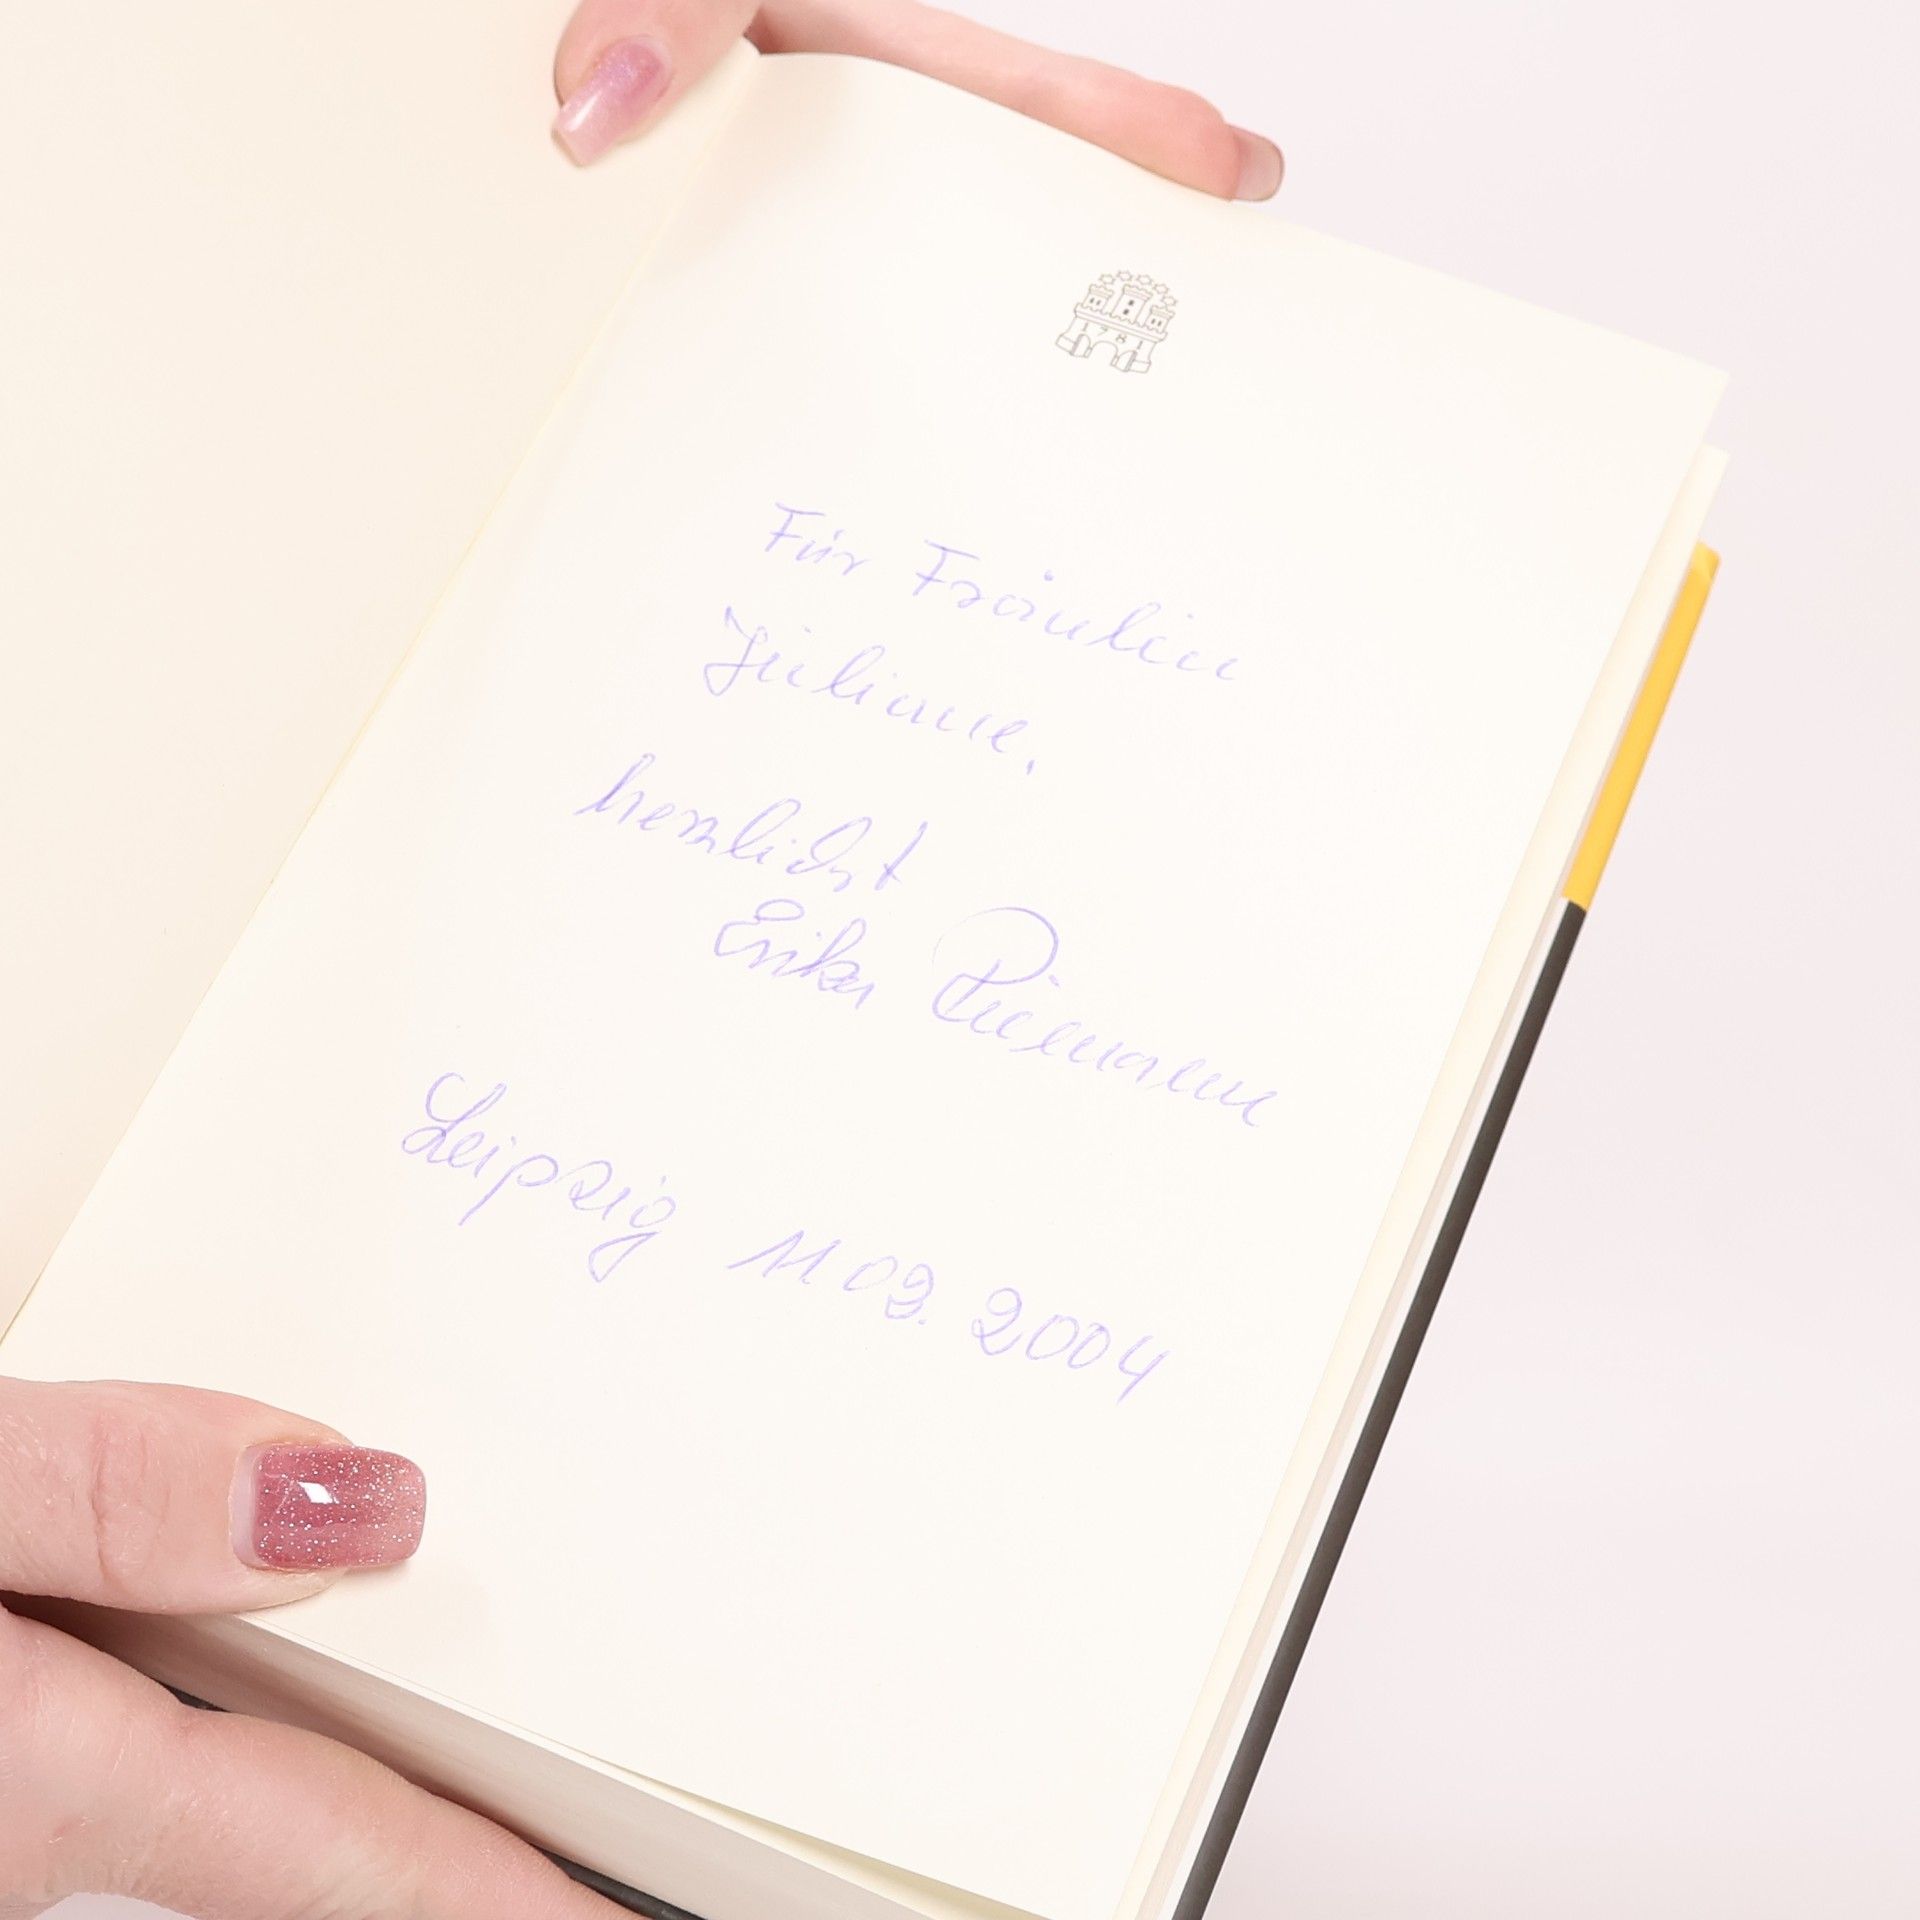 1781
Für Fräulein
Juliane,
herzlichst
Erika Riemann
Leipzig 11 03. 2004